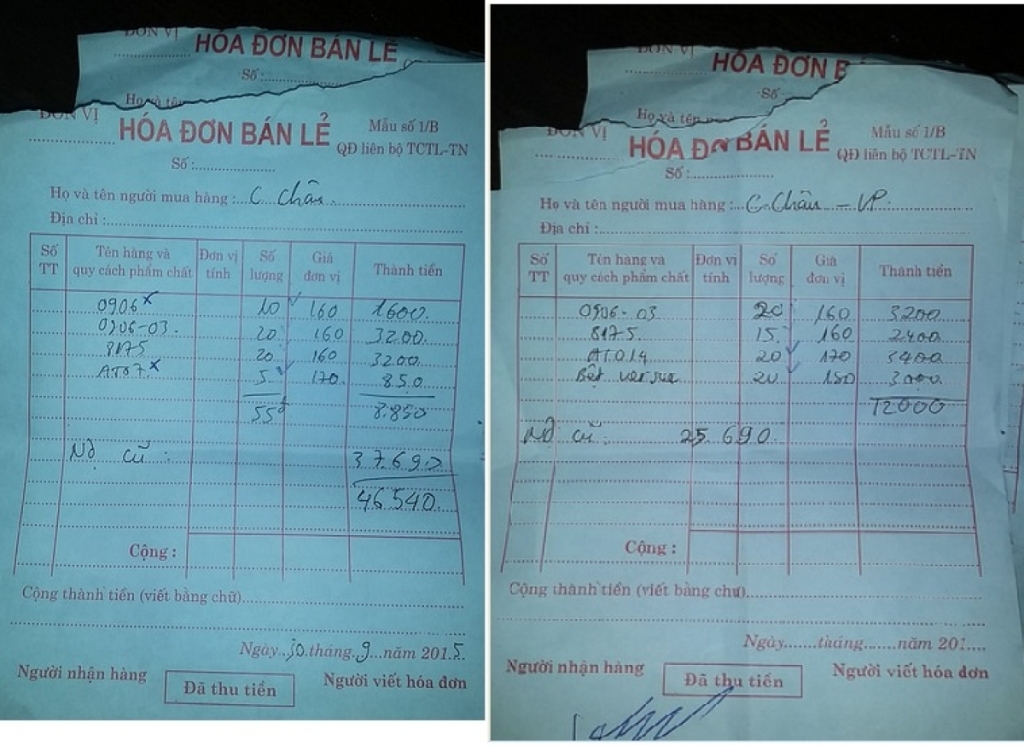 ĐƠN VỊ HÓA ĐƠN BÁN LẺ
Số:
Họ và tên
ĐƠN VỊ HÓA ĐƠN BÁN LẺ Mẫu số 1/B
QĐ liên bộ TCTL-TN
Số:
Họ và tên người mua hàng: C Châu
Địa chỉ:
Số TT Tên hàng và quy cách phẩm chất Đơn vị tính Số lượng Giá đơn vị Thành tiền
0906 x 10 160 1600
0906-03. 20 160 3200
8175 20 160 3200
AT07 x 5 170 850
55 8.850
Nợ cũ: 37.690
46.540
Cộng:
Cộng thành tiền (viết bằng chữ)
Ngày 30 tháng 9 năm 2015
Người nhận hàng Đã thu tiền Người viết hóa đơn
ĐƠN VỊ HÓA ĐƠN B
Số
Họ và tên
ĐƠN VỊ HÓA ĐƠN BÁN LẺ Mẫu số 1/B
QĐ liên bộ TCTL-TN
Số:
Họ và tên người mua hàng: C. Châu - VP
Địa chỉ:
Số TT Tên hàng và quy cách phẩm chất Đơn vị tính Số lượng Giá đơn vị Thành tiền
0906-03 20 160 3200
8175 15 160 2400
AT014 20 170 3400
Bệt 20 150 3000
12000
Nợ cũ: 25.690
Cộng:
Cộng thành tiền (viết bằng chữ)
Ngày tháng năm 201
Người nhận hàng Đã thu tiền Người viết hóa đơn